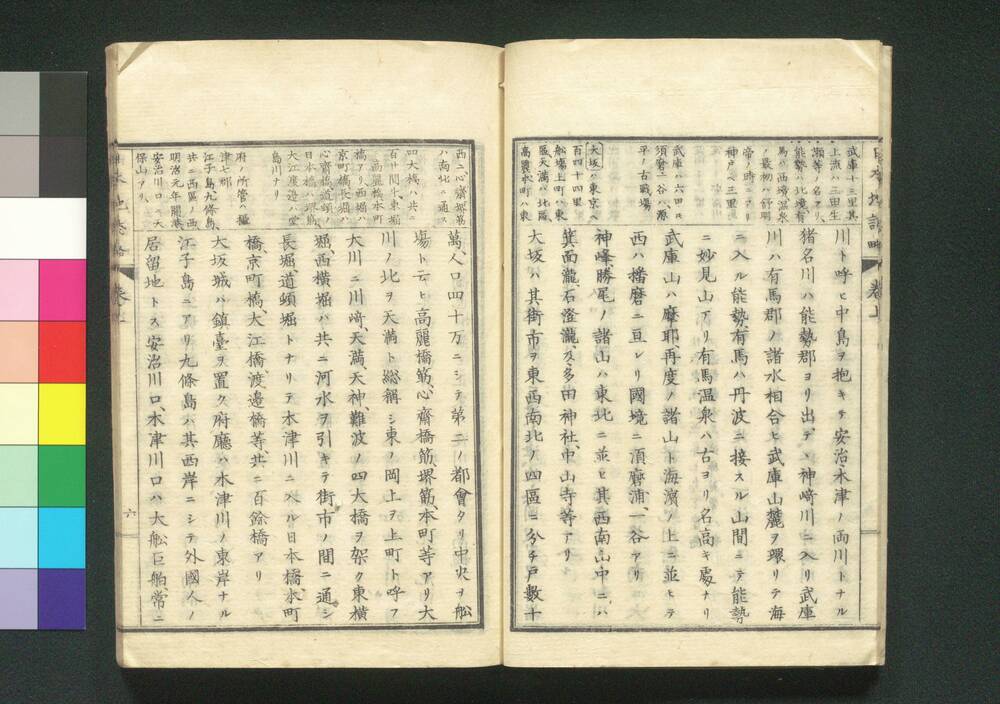 日本地誌略 巻上
武庫ハ十三里其
上流ハ三田生
瀬等ノ名アリ、
能勢ハ北境有
馬ハ西境温泉
ノ最初ハ舒明
帝ノ時ニアリ
神戸ヘ三里
武庫ハ六四ス
須磨一谷ハ源
平ノ古戰場
大坂ハ東京ヘ
百四十四里
船塲上町ハ東
區天満ハ北區
高麗本町ハ東
川ト呼ヒ中島ヲ抱キテ安治木津ノ兩川トナル
猪名川ハ能勢郡ヨリ出デ、神﨑川ニ入リ武庫
川ハ有馬郡ノ諸水相合ヒ武庫山麓ヲ環リテ海
ニ入ル能勢有馬ハ丹波ニ接スル山間ニテ能勢
ニ妙見山アリ有馬温泉ハ古ヨリ名高キ處ナリ
武庫山ハ摩耶、再度ノ諸山ト海濱ノ上ニ並ヒテ
西ハ播磨ニ亘レリ國境ニ須磨浦、一谷アリ
神峰勝尾ノ諸山ハ東北ニ並ヒ其西南山中ニハ
箕面瀧、石澄瀧、及多田神社、中山寺等アリ
大坂ハ其街市ヲ東西南北ノ四區ニ分チ戸數十
西ニ心齋堺筋
ハ南北ニ通ス
四大橋ハ共ニ
百廾間外東堀
ニ高麗橋本町
橋アリ西堀ハ
京町橋長堀ハ
心齋橋道頓ノ
日本橋ハ堺島
大江渡邊ハ堂
島川ナリ
府ノ所管ハ攝
津七郡
江子島九條島
共ニ西區ノ西
明治元年開港
安治川口ニ天
保山アリ、
萬、人口四十万ニシテ第二ノ都會タリ中央ヲ舩
塲ト云ヒ高麗橋筋、心齋橋筋、堺筋、本町等アリ大
川ノ北ヲ天満ト総稱シ東ノ岡上ヲ上町ト呼フ
大川ニ川﨑、天満、天神、難波ノ四大橋ヲ架ク東横
堀、西横堀ハ共ニ河水ヲ引キテ街市ノ間ニ通シ
長堀、道頓堀トナリテ木津川ニ入ル日本橋本町
橋、京町橋、大江橋、渡邊橋等、共ニ百餘橋アリ
大坂城ハ鎮臺ヲ置ク府廳ハ木津川ノ東岸ナル
江子島ニアリ九條島ハ其西岸ニシテ外國人ノ
居留地トス安治川口、木津川口ハ大舩巨舶、常ニ
六